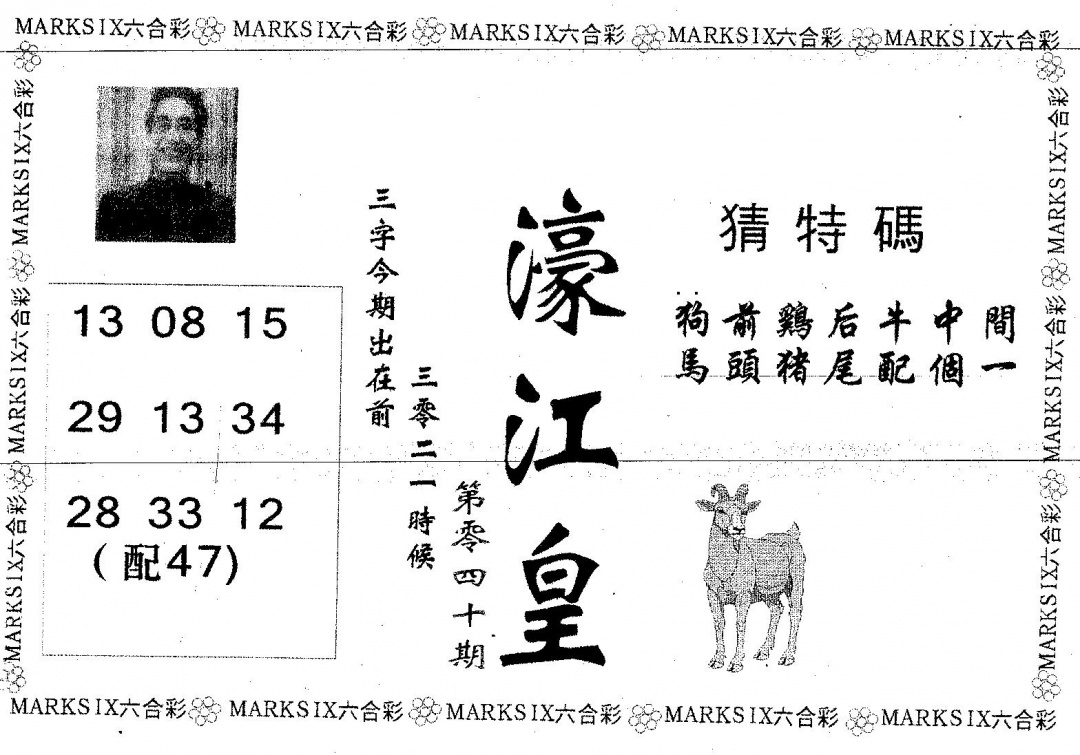 MARKSIX六合彩 MARKSIX六合彩 MARKSIX六合彩 MARKSIX六合彩 MARKSIX六合彩
MARKSIX六合彩
MARKSIX六合彩
MARKSIX六合彩
猜特碼
狗前鷄后牛中間
馬頭猪尾配個一
濠江皇
第零四十期
三零二一時候
三字今期出在前
13 08 15
29 13 34
28 33 12
(配47)
MARKSIX六合彩
MARKSIX六合彩
MARKSIX六合彩
MARKSIX六合彩 MARKSIX六合彩 MARKSIX六合彩 MARKSIX六合彩 MARKSIX六合彩